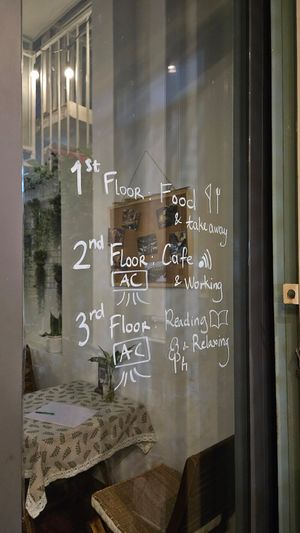 1st Floor: Food
& takeaway
2nd Floor: Cafe
AC & Working
3rd Floor: Reading
AC & Relaxing